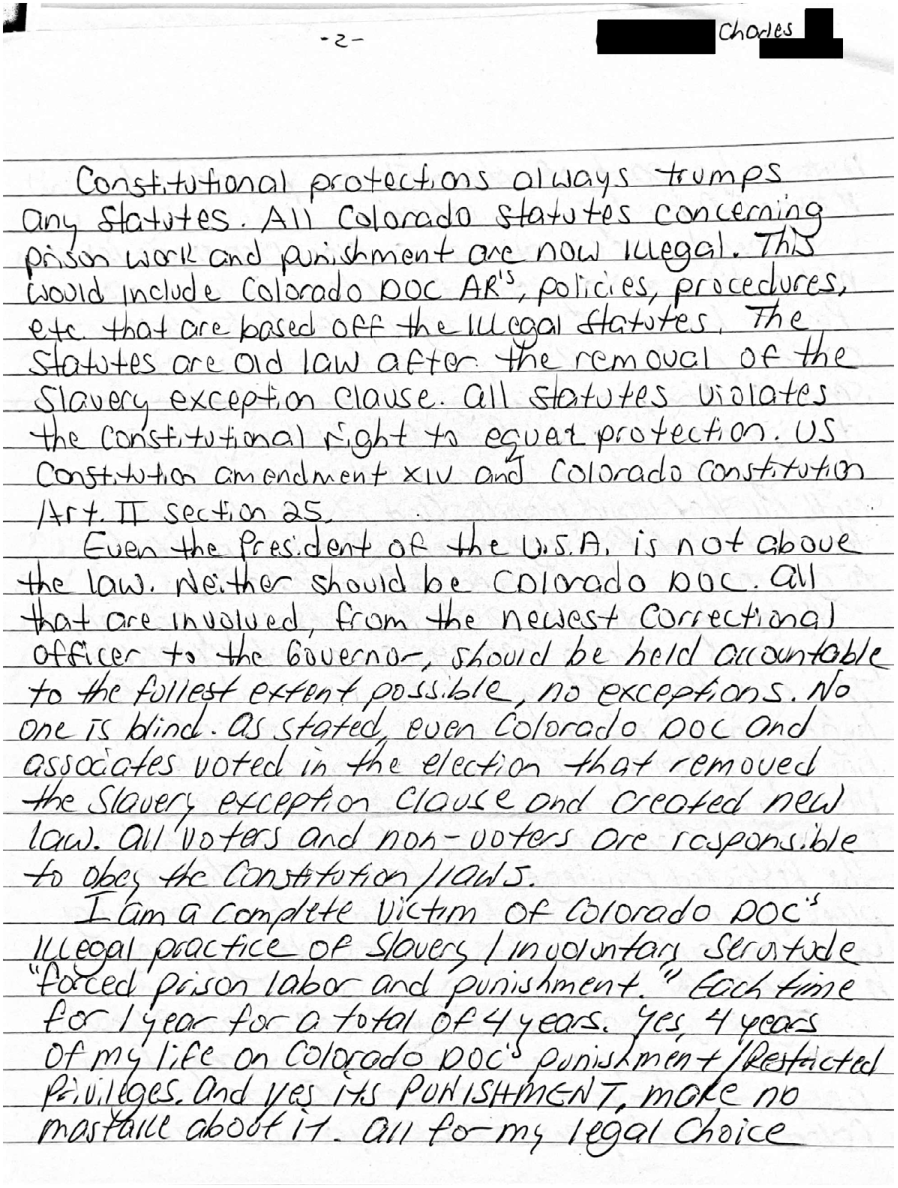 -2-
Charles
Constitutional protections always trumps
any statutes. All Colorado statutes concerning
prison work and punishment are now illegal. This
would include Colorado DOC AR's, policies, procedures,
etc. that are based off the illegal statutes. The
statutes are old law after the removal of the
slavery exception clause. All statutes violates
the constitutional right to equal protection. US
Constitution amendment XIV and Colorado constitution
Art. II section 25.
Even the President of the U.S.A. is not above
the law. Neither should be Colorado DOC. All
that are involved, from the newest Correctional
officer to the Governor, should be held accountable
to the fullest extent possible, no exceptions. No
one is blind. As stated, even Colorado DOC and
associates voted in the election that removed
the slavery exception clause and created new
law. All voters and non-voters are responsible
to obey the Constitution/laws.
I am a complete victim of Colorado DOC's
illegal practice of Slavery/involuntary servitude
"forced prison labor and punishment." Each time
for 1 year for a total of 4 years. Yes, 4 years
of my life on Colorado DOC's punishment/Restricted
Privileges. And yes its PUNISHMENT, make no
mastake about it. All for my legal choice